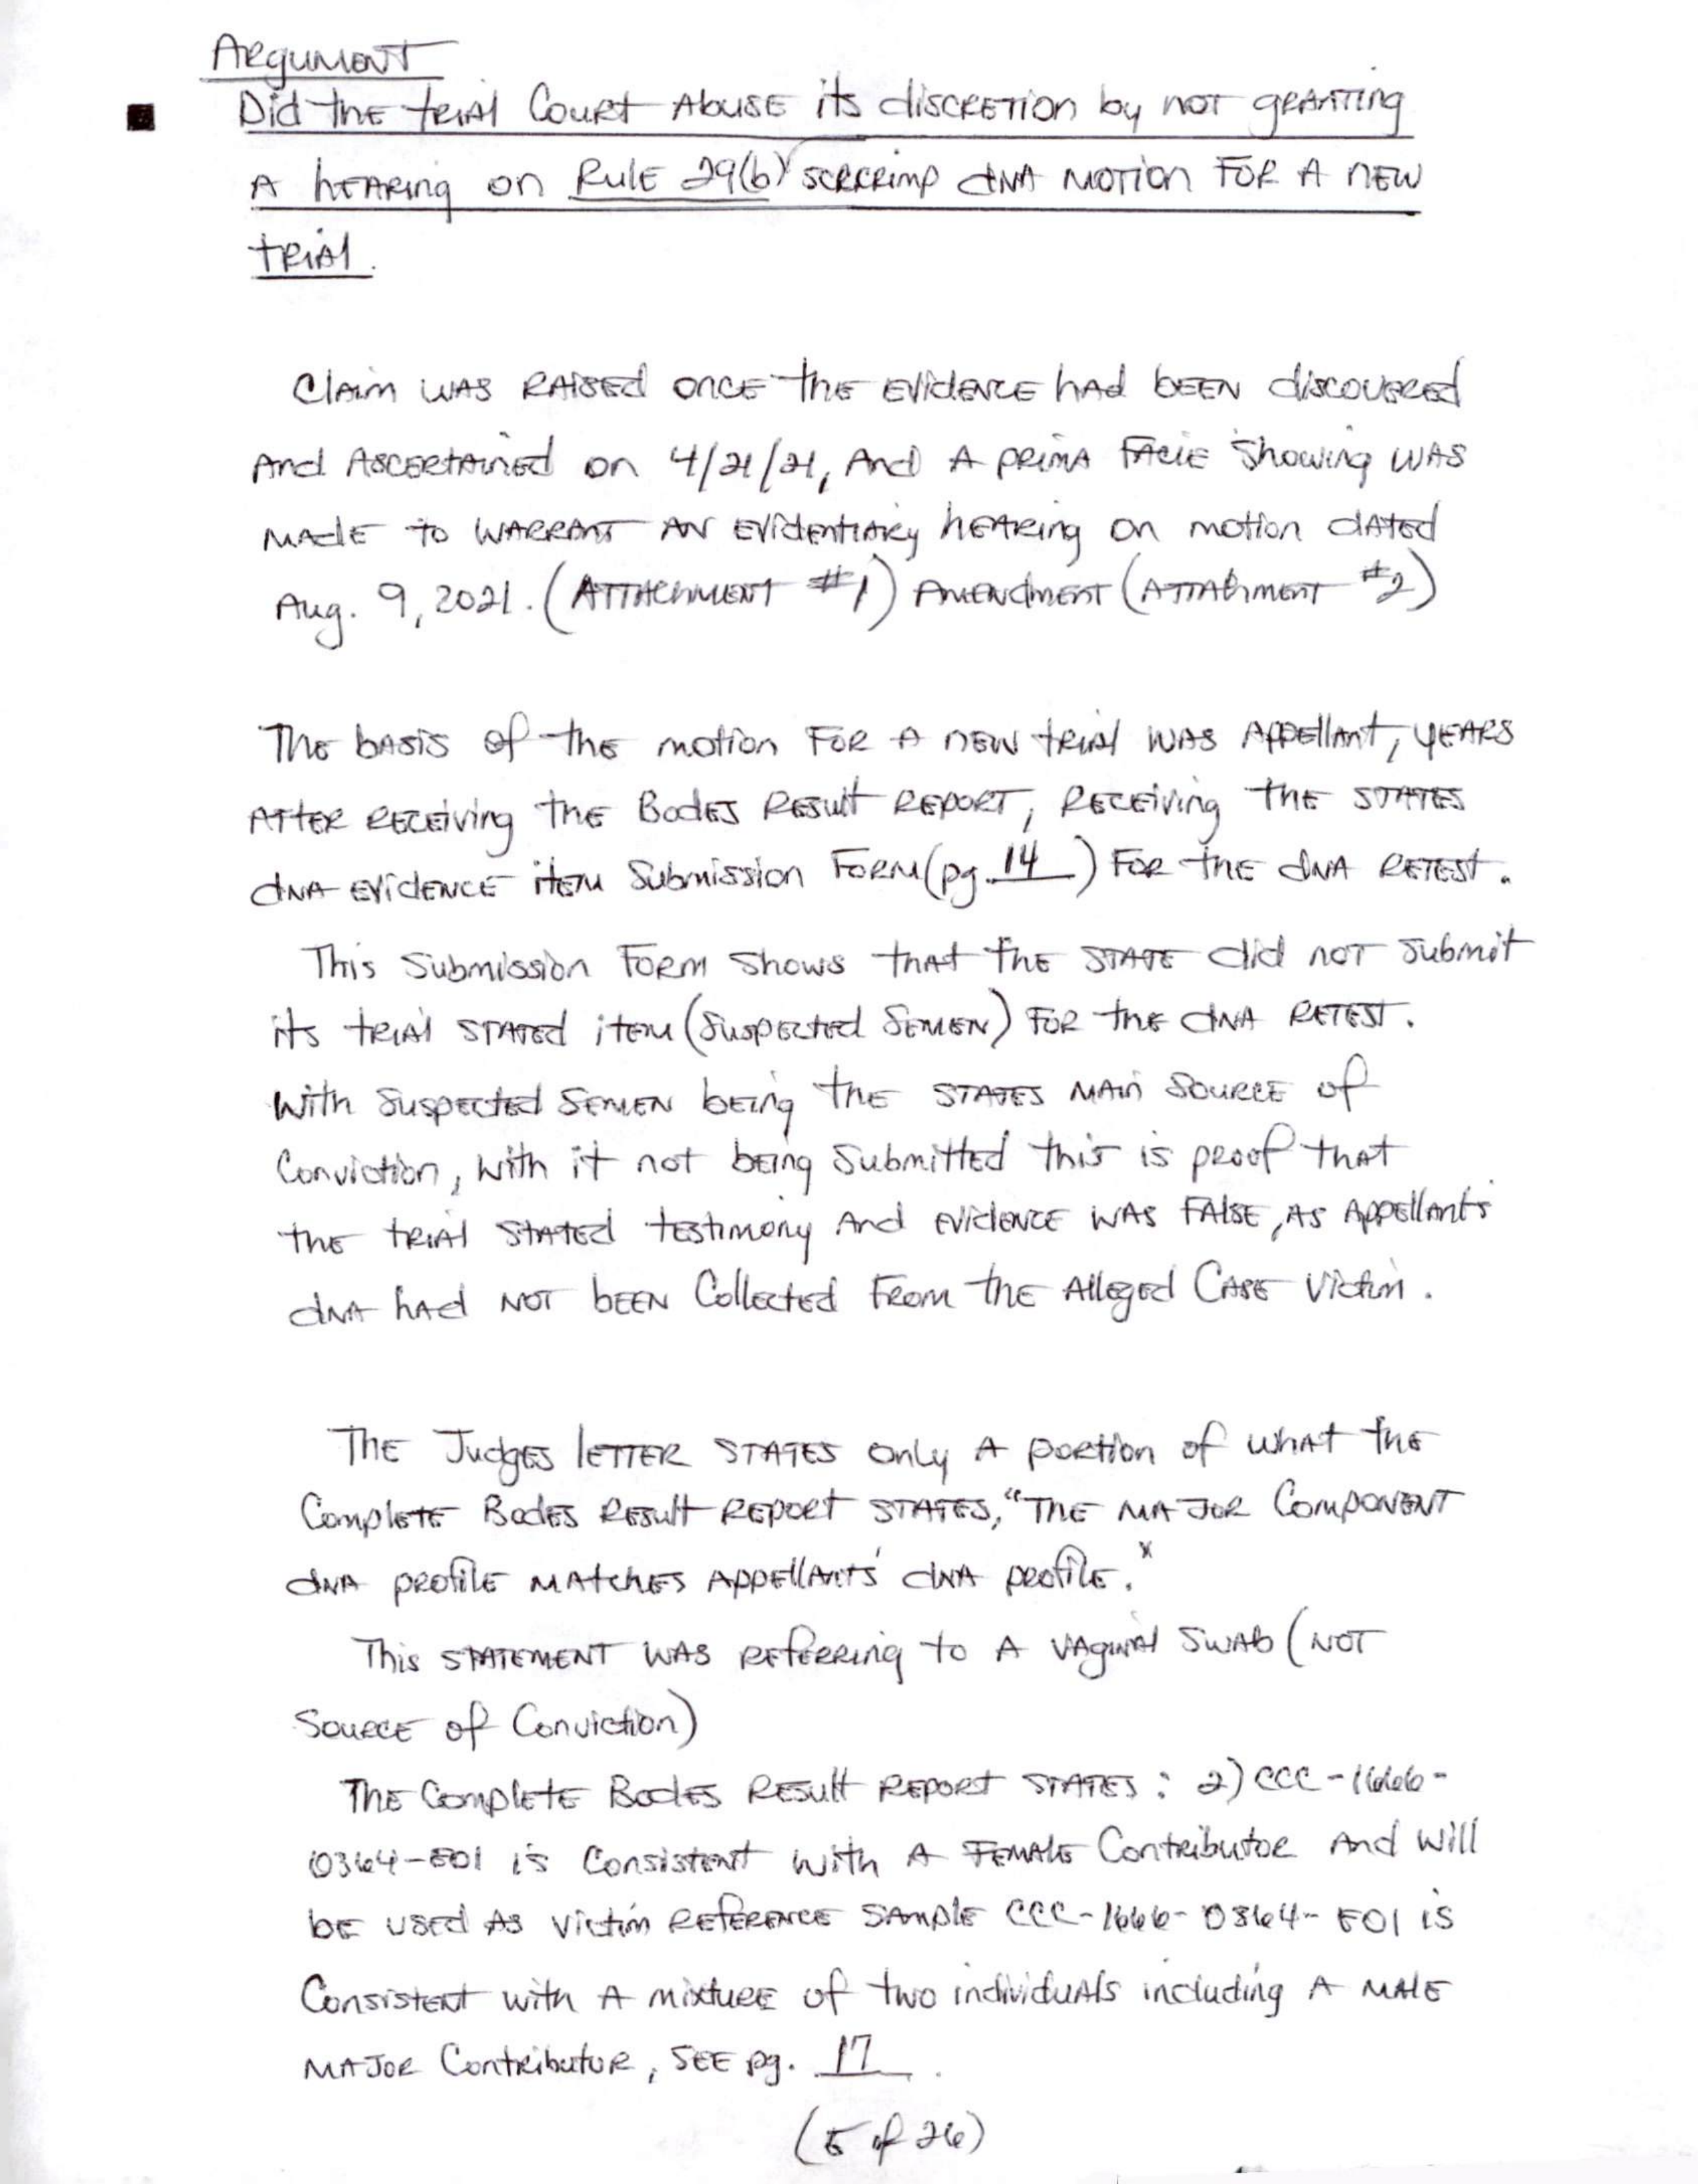 Argument
Did the trial Court Abuse its discretion by not granting
A hearing on Rule 29(b) SCRCRIMP DNA motion for a new
trial.
Claim was raised once the evidence had been discovered
And Ascertained on 4/21/21, And A prima facie showing was
made to warrant an evidentiary hearing on motion dated
Aug. 9, 2021. (Attachment #1) Amendment (Attachment #2)
The basis of the motion for a new trial was Appellant, years
after receiving the Bodes Result Report, receiving the states
DNA evidence item submission form (pg. 14) for the DNA retest.
This submission form shows that the state did not submit
its trial stated item (suspected semen) for the DNA retest.
With suspected semen being the states main source of
Conviction, with it not being submitted this is proof that
the trial stated testimony and evidence was false, as Appellants
DNA had NOT been Collected from the Alleged Case Victim.
The Judges letter states only a portion of what the
Complete Bodes Result Report states, "The major component
DNA profile matches Appellants' DNA profile."
This statement was referring to a vaginal swab (NOT
Source of Conviction)
The Complete Bodes Result Report states: 2) CCC-1666-
0364-E01 is consistent with a female Contributor and will
be used as victim reference sample CCC-1666-0364-E01 is
Consistent with a mixture of two individuals including a male
major Contributor, see pg. 17.
(5 of 26)